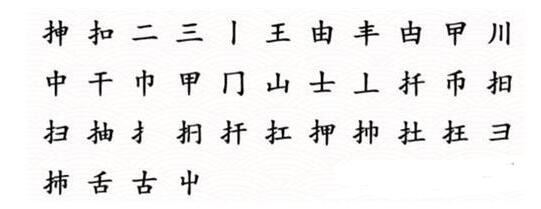 抻 扣 二 三 丨 王 由 丰 甴 曱 川
中 干 巾 甲 冂 山 士 丄 扦 币 抇
扫 抽 扌 抈 扞 扛 押 抻 扗 抂 彐
抪 舌 古 屮